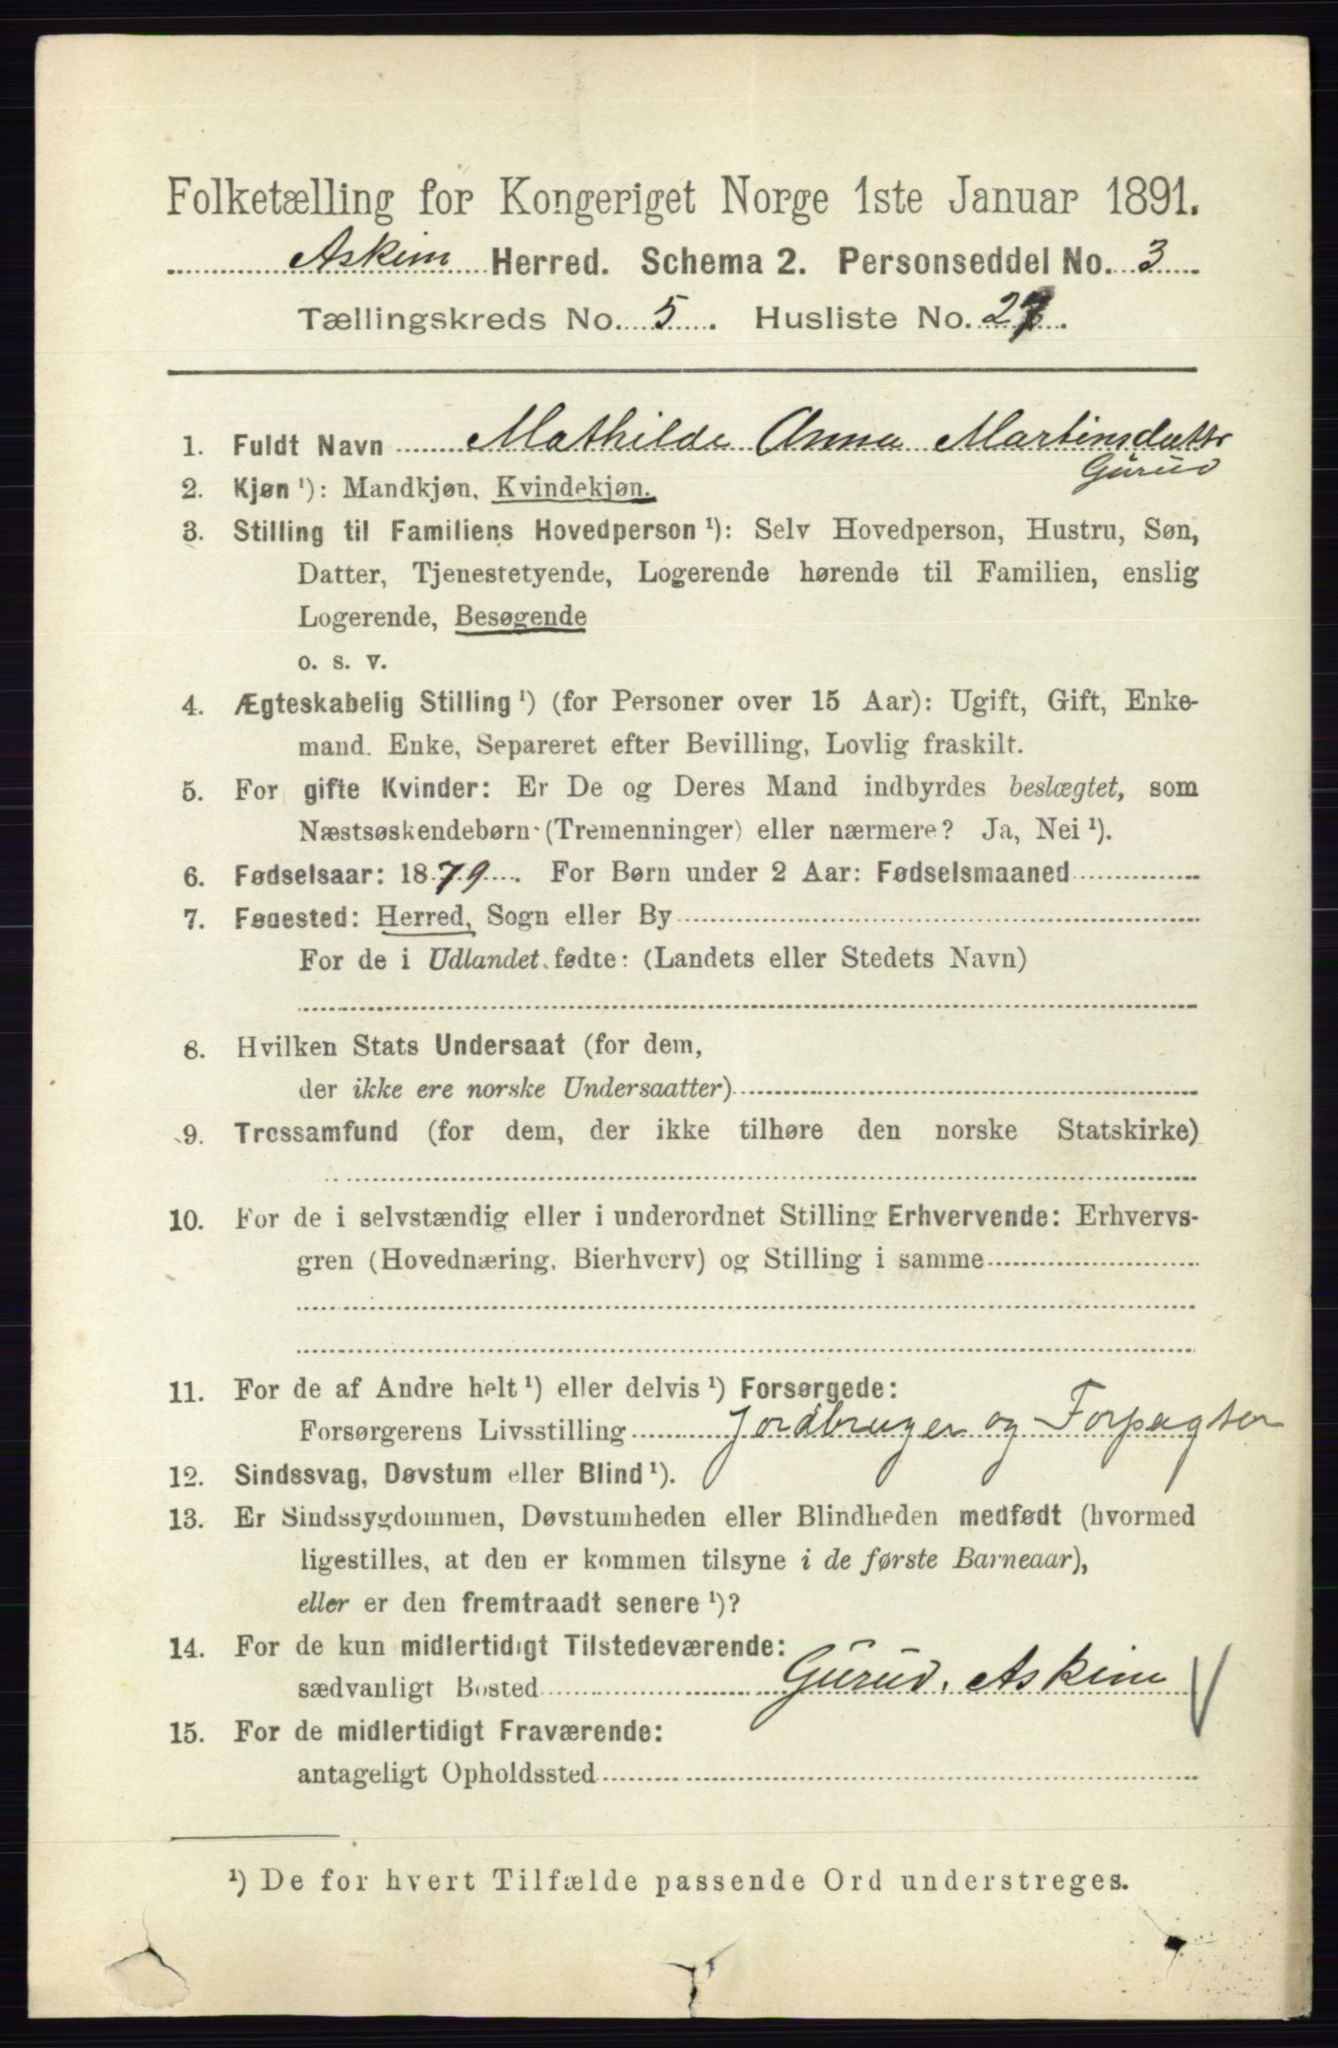 Folketælling for Kongeriget Norge 1ste Januar 1891.
Askim Herred. Schema 2. Personseddel No. 3
Tællingskreds No. 5. Husliste No. 27.
1. Fuldt Navn Mathilde Anna Martinsdatter
Gurud
2. Kjøn ¹): Mandkjøn, Kvindekjøn.
3. Stilling til Familiens Hovedperson ¹): Selv Hovedperson, Hustru, Søn,
Datter, Tjenestetyende, Logerende hørende til Familien, enslig
Logerende, Besøgende
o. s. v.
4. Ægteskabelig Stilling ¹) (for Personer over 15 Aar): Ugift, Gift, Enke-
mand. Enke, Separeret efter Bevilling, Lovlig fraskilt.
5. For gifte Kvinder: Er De og Deres Mand indbyrdes beslægtet, som
Næstsøskendebørn (Tremenninger) eller nærmere? Ja, Nei ¹).
6. Fødselsaar: 1879. For Børn under 2 Aar: Fødselsmaaned
7. Fødested: Herred, Sogn eller By
For de i Udlandet fødte: (Landets eller Stedets Navn)
8. Hvilken Stats Undersaat (for dem,
der ikke ere norske Undersaatter)
9. Trossamfund (for dem, der ikke tilhøre den norske Statskirke)
10. For de i selvstændig eller i underordnet Stilling Erhvervende: Erhvervs-
gren (Hovednæring, Bierhverv) og Stilling i samme
11. For de af Andre helt ¹) eller delvis ¹) Forsørgede:
Forsørgerens Livsstilling Jordbruger og Forpagter
12. Sindssvag, Døvstum eller Blind ¹).
13. Er Sindssygdommen, Døvstumheden eller Blindheden medfødt (hvormed
ligestilles, at den er kommen tilsyne i de første Barneaar),
eller er den fremtraadt senere ¹)?
14. For de kun midlertidigt Tilstedeværende:
sædvanligt Bosted Gurud, Askim
15. For de midlertidigt Fraværende:
antageligt Opholdssted
¹) De for hvert Tilfælde passende Ord understreges.